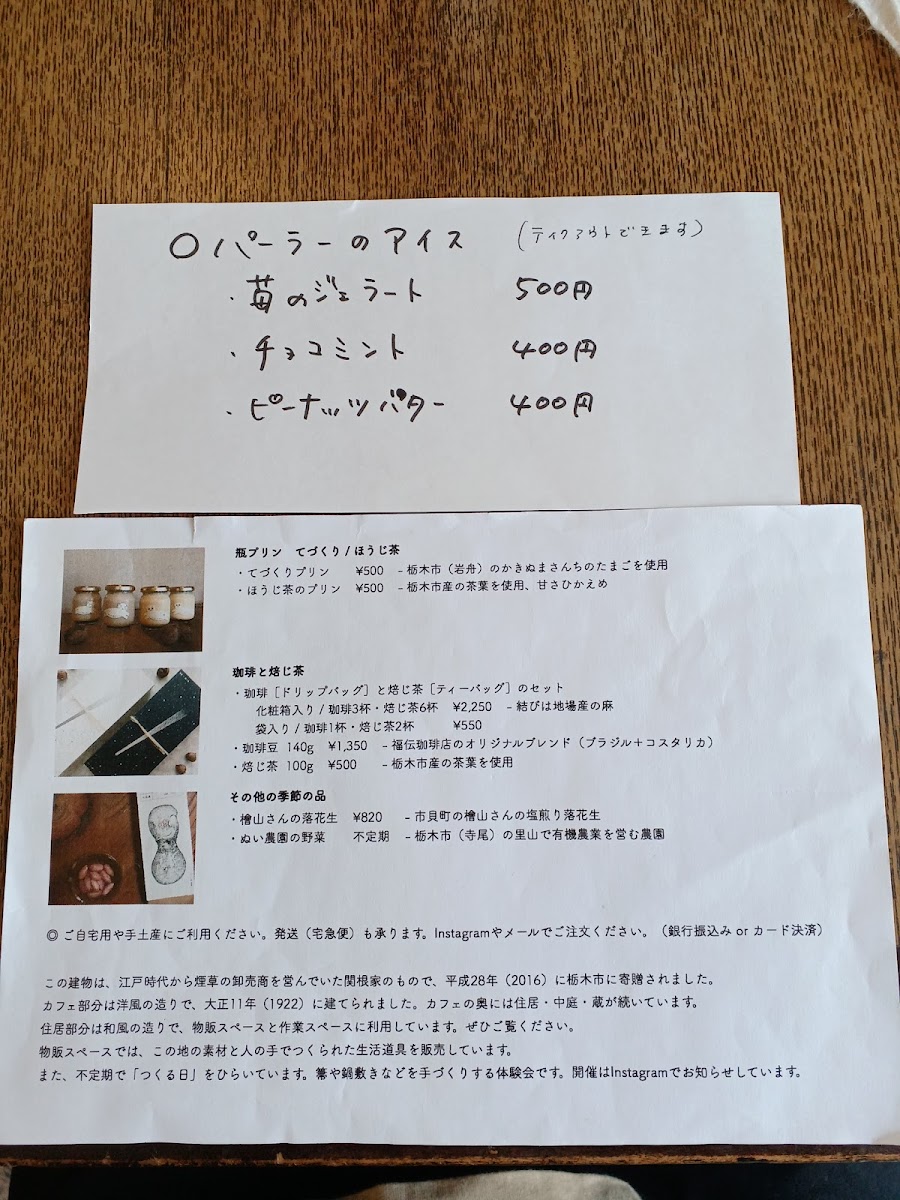 ○パーラーのアイス (テイクアウトできます)
・苺のジェラート 500円
・チョコミント 400円
・ピーナッツバター 400円
瓶プリン てづくり / ほうじ茶
・てづくりプリン ¥500 – 栃木市（岩舟）のかきぬまさんちのたまごを使用
・ほうじ茶のプリン ¥500 – 栃木市産の茶葉を使用、甘さひかえめ
珈琲と焙じ茶
・珈琲［ドリップバッグ］と焙じ茶［ティーバッグ］のセット
化粧箱入り / 珈琲3杯・焙じ茶6杯 ¥2,250 – 結びは地場産の麻
袋入り / 珈琲1杯・焙じ茶2杯 ¥550
・珈琲豆 140g ¥1,350 – 福伝珈琲店のオリジナルブレンド（ブラジル＋コスタリカ）
・焙じ茶 100g ¥500 – 栃木市産の茶葉を使用
その他の季節の品
・檜山さんの落花生 ¥820 – 市貝町の檜山さんの塩煎り落花生
・ぬい農園の野菜 不定期 – 栃木市（寺尾）の里山で有機農業を営む農園
◎ ご自宅用や手土産にご利用ください。発送（宅急便）も承ります。Instagramやメールでご注文ください。（銀行振込み or カード決済）
この建物は、江戸時代から煙草の卸売商を営んでいた関根家のもので、平成28年（2016）に栃木市に寄贈されました。
カフェ部分は洋風の造りで、大正11年（1922）に建てられました。カフェの奥には住居・中庭・蔵が続いています。
住居部分は和風の造りで、物販スペースと作業スペースに利用しています。ぜひご覧ください。
物販スペースでは、この地の素材と人の手でつくられた生活道具を販売しています。
また、不定期で「つくる日」をひらいています。箒や鍋敷きなどを手づくりする体験会です。開催はInstagramでお知らせしています。